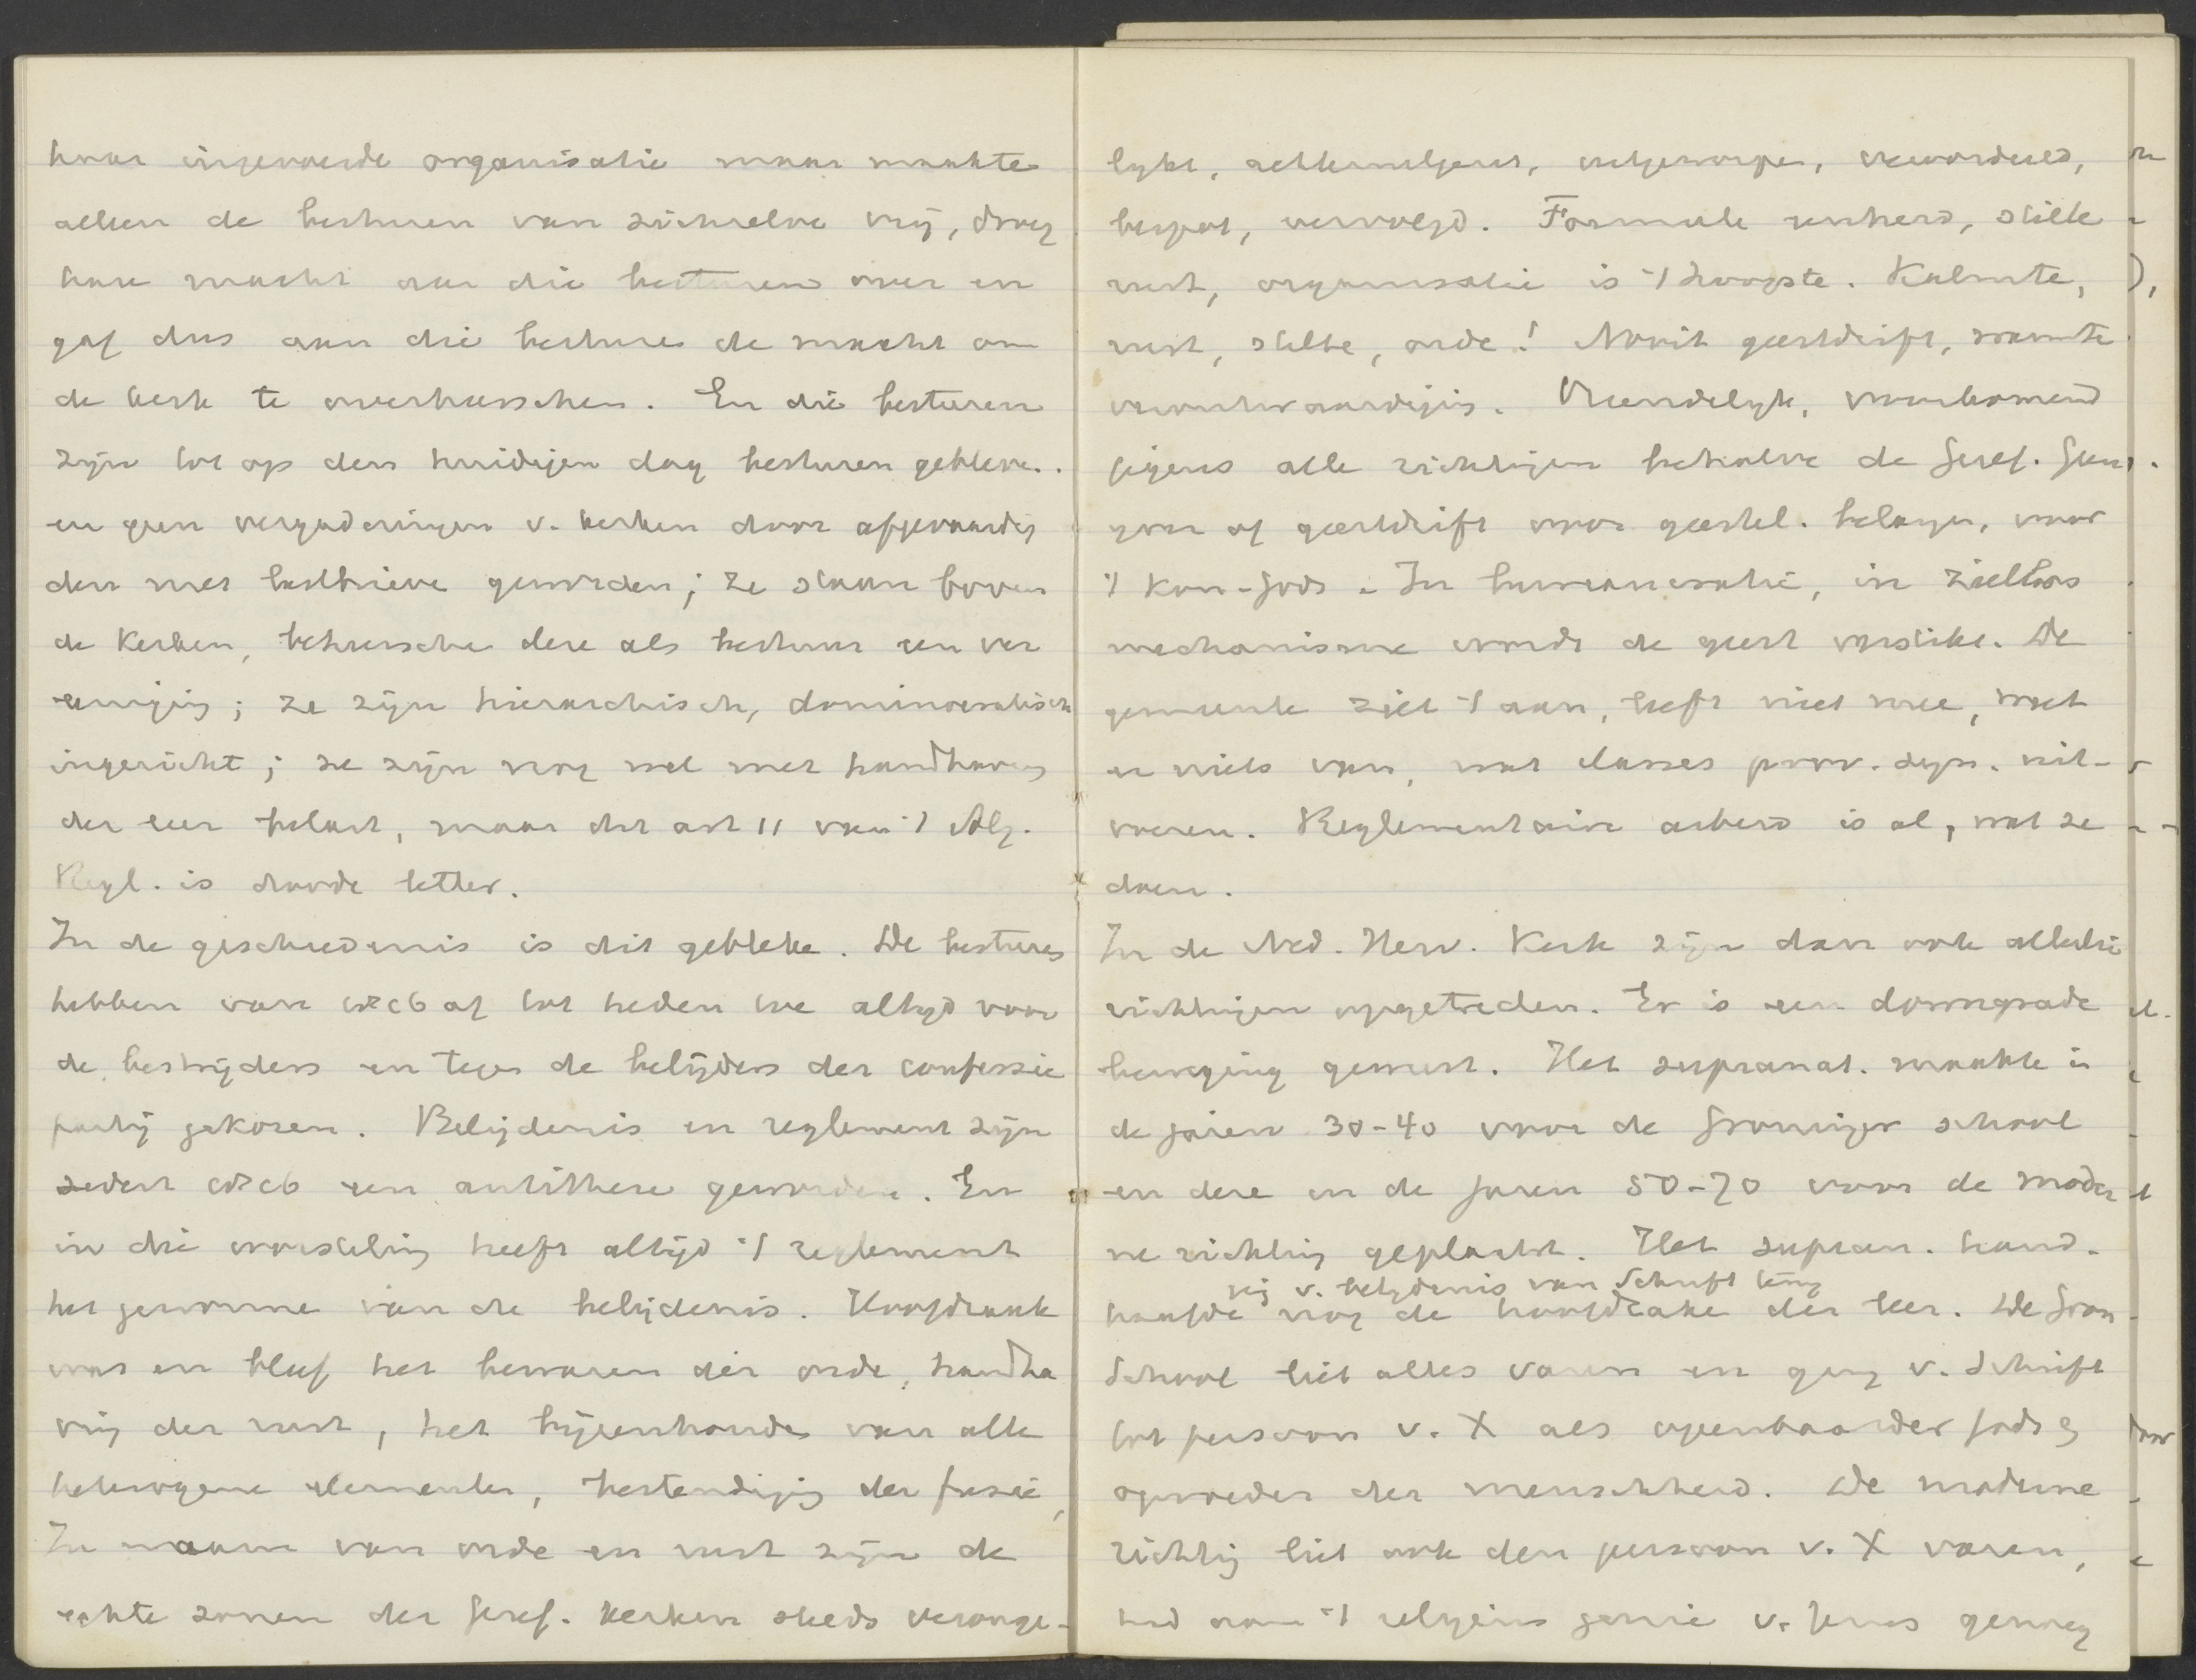 haar ingevoerde organisatie maar maakte
alleen de besturen van zichzelve vrij, droeg
hare macht aan die besturen over en
gaf dus aan die besturen de macht om
de kerk te overheerschen. En die besturen
zijn tot op den huidigen dag besturen gebleven.
en geen vergaderingen v. kerken door afgevaardig
den met lastbrieve geworden; ze staan boven
de Kerken, beheersche deze als bestuur een ver
eeniging; ze zijn hierarchisch, dominocratisch
ingericht; ze zijn nog wel met handhaving
der leer belast, maar dit art 11 van 't Alg.
Regl. is doode letter.
In de geschiedenis is dit gebleke. De besturen
hebben van 1816 af tot heden toe altijd voor
de bestrijders en tegen de belijders der confessie
partij gekozen. Belijdenis en reglement zijn
sedert 1816 een antithese geworden. En
in die worsteling heeft altijd 't reglement
het gewonne van de belijdenis. Hoofdzaak
was en bleef het bewaren der orde, handha
ving der rust, het bijeenhouden van alle
heterogene elementen, bestendiging der fusie,
In naam van orde en rust zijn de
echte zonen der Geref. Kerken steeds veronge-
lykt, achteruitgezet, uitgeworpen, veroordeeld,
bespot, vervolgd. Formeele eenheid, stille
rust, organisatie is 't hoogste. Kalmte,
rust, stilte, orde! Nooit geestdrift, warmte
verontwaardiging. Vriendelyk, voorkomend
jegens alle richtingen behalve de Geref. Geen
zorg of geestdrift voor geestel. belangen, voor
't Kon. Gods. In bureaucratie, in zielloos
mechanisme wordt de geest verstikt. De
gemeente ziet 't aan, leeft niet mee, weet
er niets van, wat classes prov. syn. uit-
voeren. Reglementaire arbeid is al, wat ze
doen.
In de Ned. Herv. Kerk zijn dan ook allerlei
richtingen opgetreden. Er is een downgrade
beweging geweest. Het supranat. maakte in
de jaren 30-40 voor de Groninger school
en deze in de jaren 50-70 voor de moder
ne richting plaats. Het supran. hand-
haafde nog de hoofdzake der leer. De Gron
School liet alles varen en ging v. Schrift
tot persoon v. X als openbaarder Gods en
opvoeder der menschheid. De moderne
richting liet ook den persoon v. X varen,
had aan 't religieus genie v. Jezus genoeg